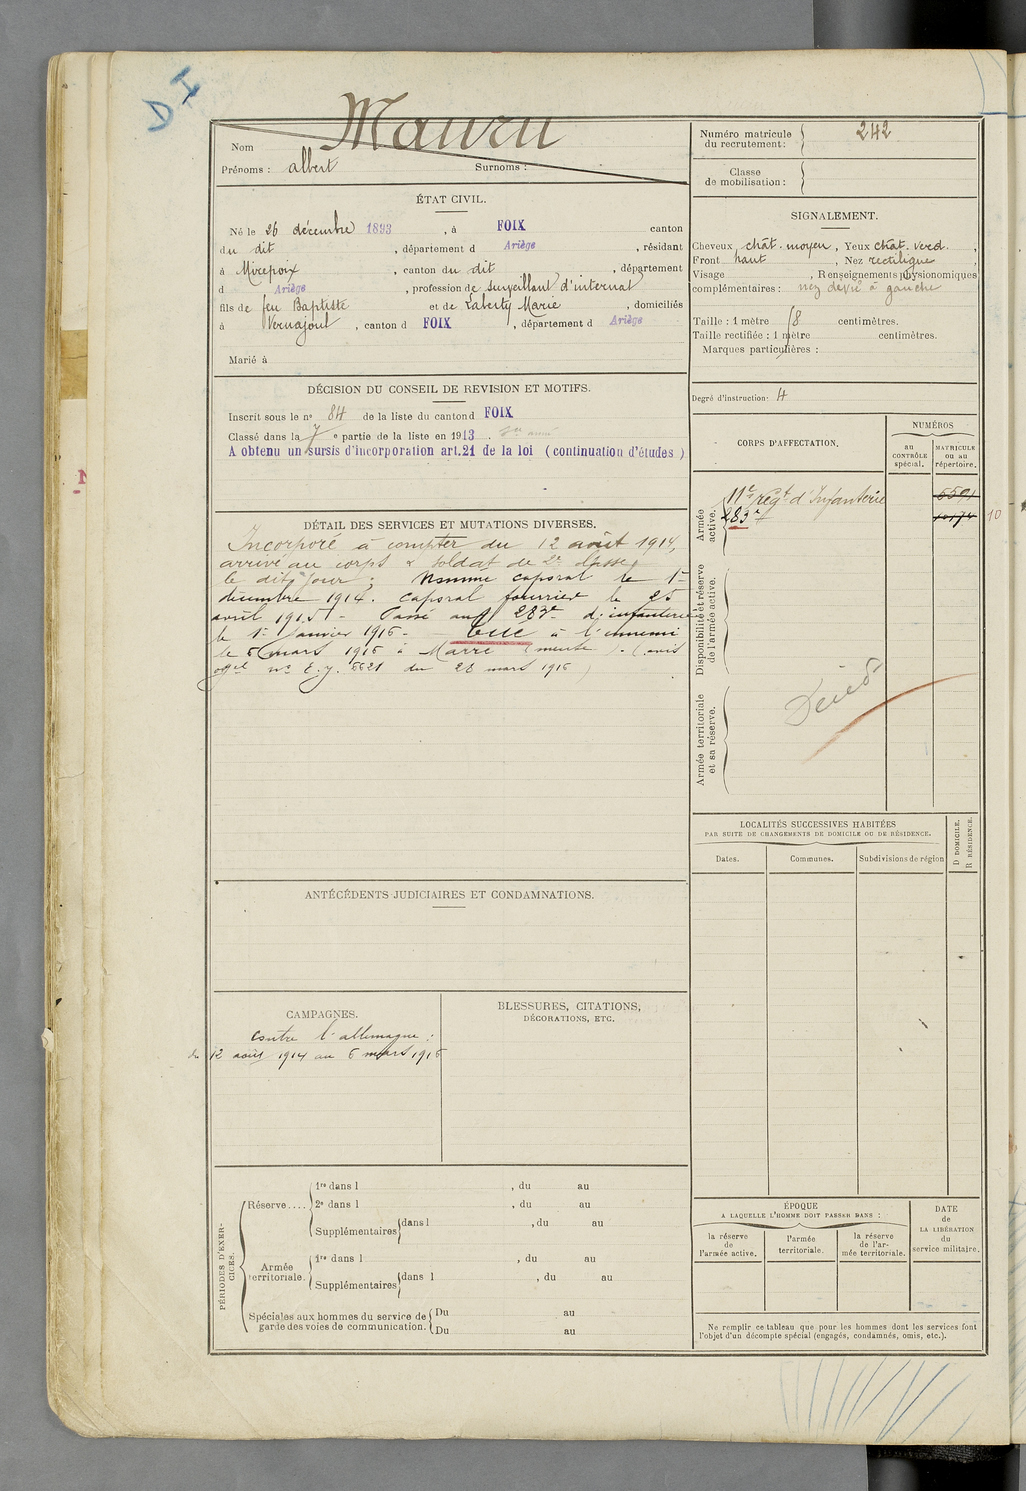 D I
Nom Maury
Prénoms : albert Surnoms :
Numéro matricule du recrutement : 242
Classe de mobilisation :
ÉTAT CIVIL.
Né le 26 décembre 1893, à FOIX canton
du dit, département d Ariège, résidant
à Mirepoix, canton du dit, département
d Ariège, profession de surveillant d'internat
fils de feu Baptiste et de Laberty Marie, domiciliés
à Vernajoul, canton d FOIX, département d Ariège
Marié à
SIGNALEMENT.
Cheveux chât. moyen, Yeux chât. verd.,
Front haut, Nez rectiligne,
Visage , Renseignements physionomiques
complémentaires : nez dévié à gauche
Taille : 1 mètre 68 centimètres.
Taille rectifiée : 1 mètre centimètres.
Marques particulières :
Degré d'instruction : 4
DÉCISION DU CONSEIL DE REVISION ET MOTIFS.
Inscrit sous le n° 84 de la liste du canton d FOIX
Classé dans la 7 e partie de la liste en 1913.
A obtenu un sursis d'incorporation art. 21 de la loi (continuation d'études)
DÉTAIL DES SERVICES ET MUTATIONS DIVERSES.
Incorporé à compter du 12 août 1914,
arrivé au corps & soldat de 2e classe
le dit jour ; Nommé caporal le 1er
décembre 1914. Caporal fourrier le 25
avril 1915. Passé au 283e d'infanterie
le 1er Janvier 1916 - Tué à l'ennemi
le 6 mars 1916 à Marre (meuse). (avis
offel no E.y. 6621 du 28 mars 1916)
CORPS D'AFFECTATION.
NUMÉROS
au CONTRÔLE spécial.
MATRICULE ou au répertoire.
Armée active.
11e régt d'Infanterie
283e
10
Disponibilité et réserve de l'armée active.
Armée territoriale et sa réserve.
Décédé
LOCALITÉS SUCCESSIVES HABITÉES
PAR SUITE DE CHANGEMENTS DE DOMICILE OU DE RÉSIDENCE.
D DOMICILE.
R RÉSIDENCE.
Dates. Communes. Subdivisions de région
ANTÉCÉDENTS JUDICIAIRES ET CONDAMNATIONS.
CAMPAGNES.
contre l'allemagne :
du 12 août 1914 au 6 mars 1916
BLESSURES, CITATIONS,
DÉCORATIONS, ETC.
PÉRIODES D'EXERCICES.
Réserve....
1re dans l , du au
2e dans l , du au
Supplémentaires dans l , du au
Armée territoriale.
1re dans l , du au
Supplémentaires dans l , du au
Spéciales aux hommes du service de Du au
garde des voies de communication. Du au
ÉPOQUE
A LAQUELLE L'HOMME DOIT PASSER DANS :
la réserve de l'armée active.
l'armée territoriale.
la réserve de l'armée territoriale.
DATE de LA LIBÉRATION du service militaire.
Ne remplir ce tableau que pour les hommes dont les services font
l'objet d'un décompte spécial (engagés, condamnés, omis, etc.).